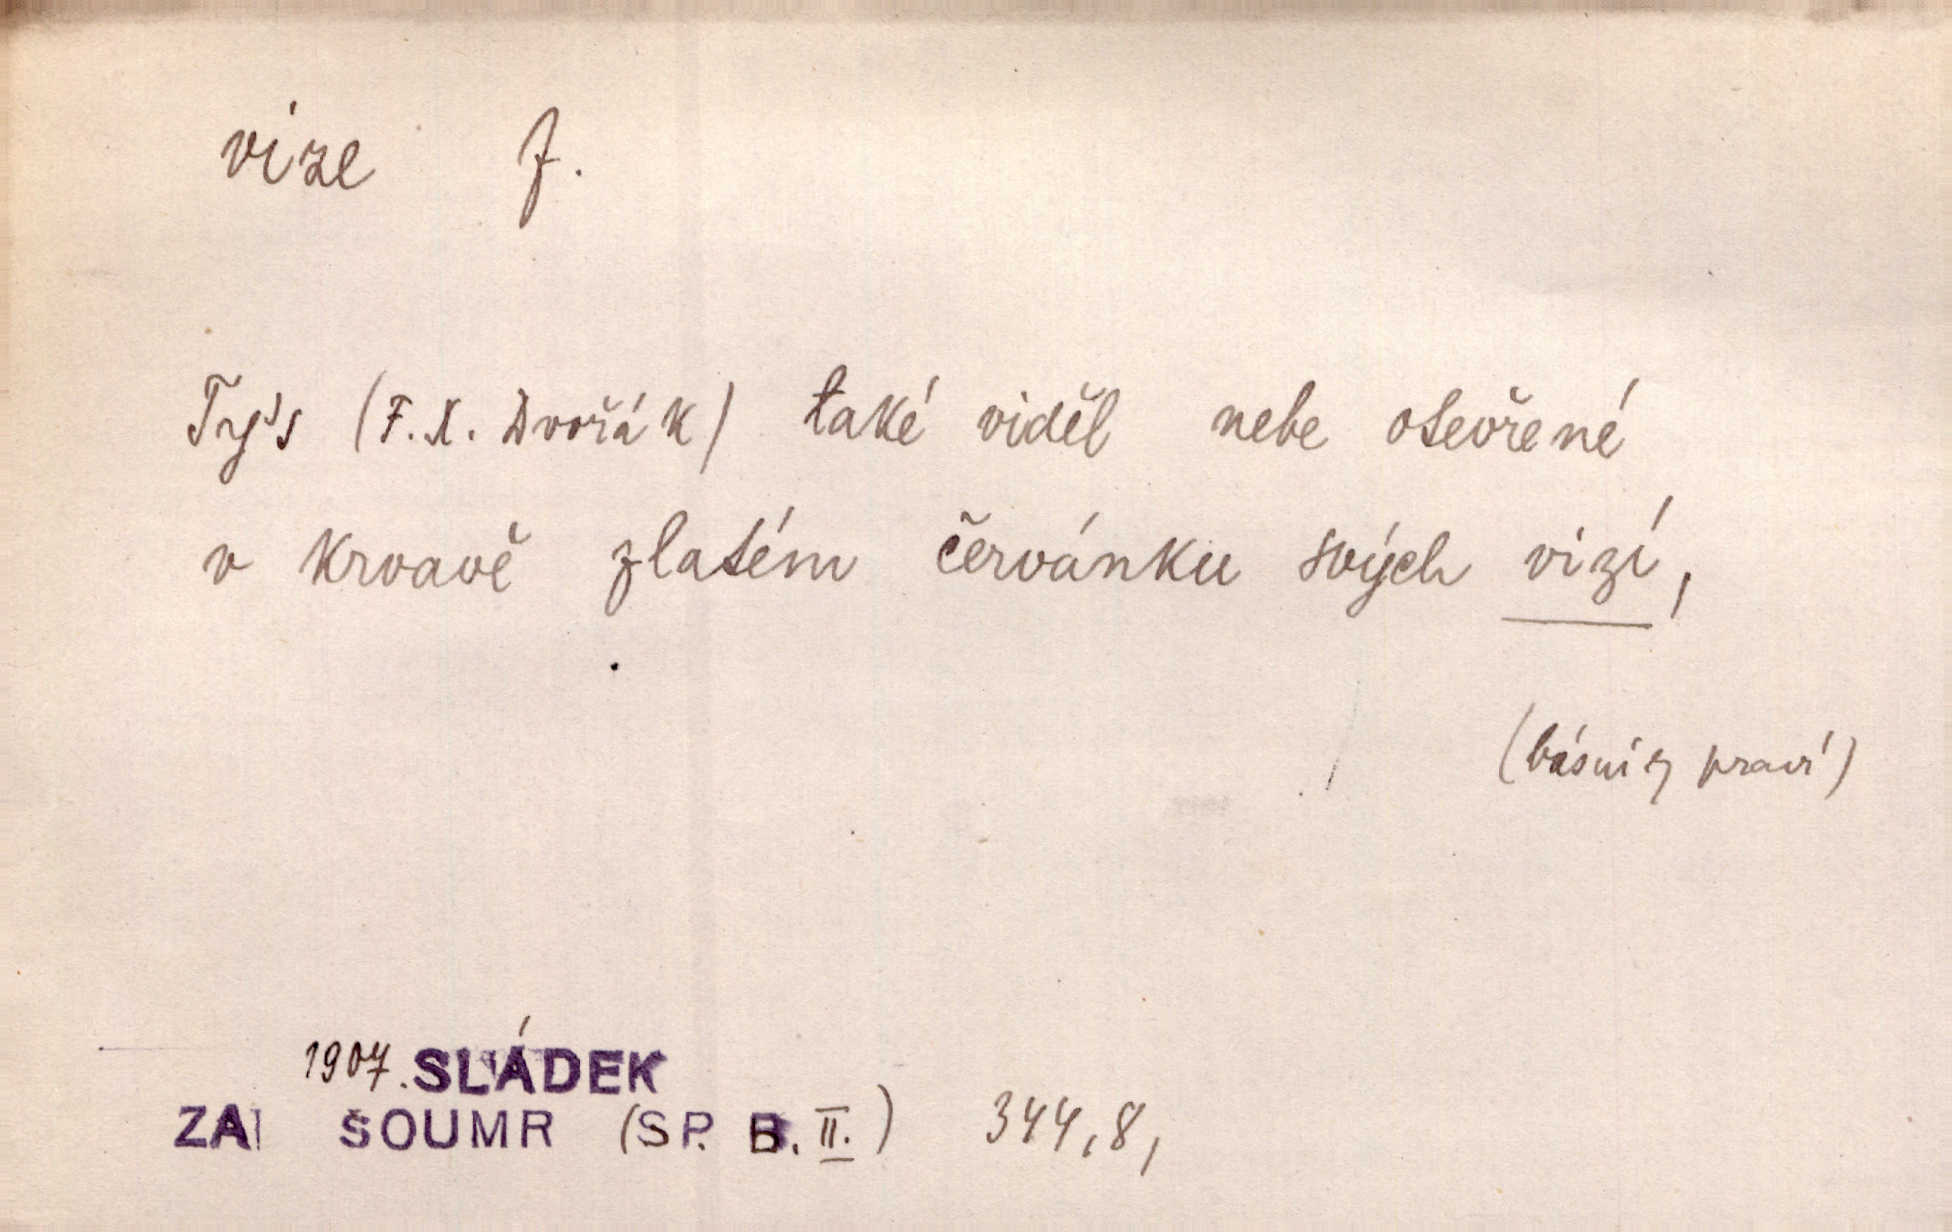 vize f.
Ty's (F. X. Dvořák) také viděl nebe otevřené
v krvavě zlatém červánku svých vizí,
(básník praví)
1907. SLÁDEK
ZA ŠOUMR (SP. B. II.) 344, 8,